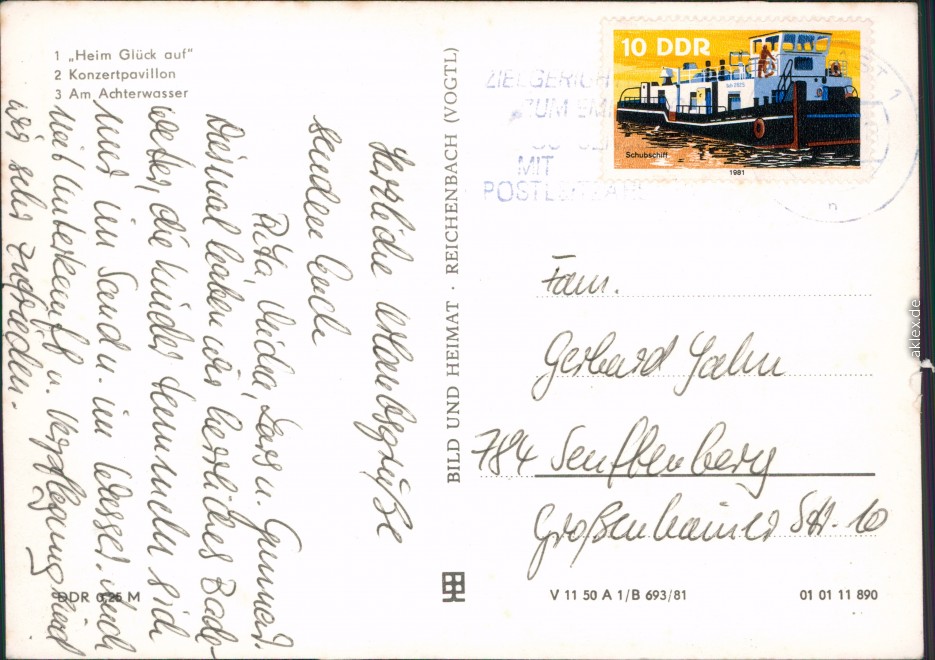 1 „Heim Glück auf“
2 Konzertpavillon
3 Am Achterwasser
Herzliche Urlaubsgrüße
senden Euch
Rita, Lars u. Gunnar.
Diesmal haben wir herrliches Bade-
wetter, die Kinder tummeln sich
nur im Sand u. im Wasser. Auch
mit Unterkunft u. Verpflegung sind
wir sehr zufrieden.
DDR 0,25 M
BILD UND HEIMAT · REICHENBACH (VOGTL)
10 DDR
Schubschiff
1981
ZIELGERICH
ZUM EM
MIT
POSTLEITZAHL
Fam.
Gerhard Jahn
784 Senftenberg
Großenhainer Str. 10
V 11 50 A 1/B 693/81
01 01 11 890
aklex.de